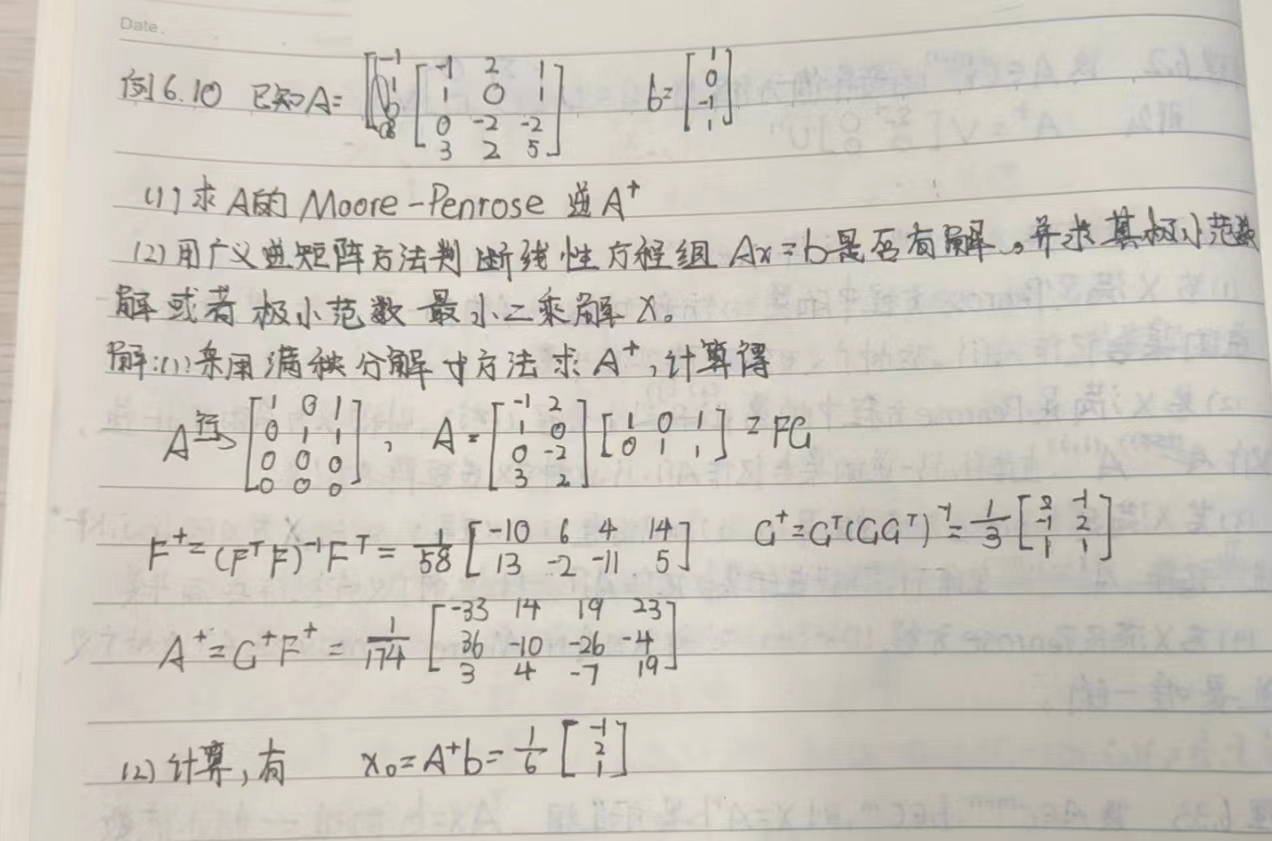 Date.
例6.10 已知A= [-1 2 1; 1 0 1; 0 -2 -2; 3 2 5] b= [1; 0; -1; 1]
(1) 求A的 Moore-Penrose 逆A⁺
(2) 用广义逆矩阵方法判断线性方程组 Ax=b是否有解,并求其极小范数
解或者极小范数最小二乘解x。
解:(1)采用满秩分解寸方法求A⁺,计算得
A 行→ [1 0 1; 0 1 1; 0 0 0; 0 0 0], A= [-1 2; 1 0; 0 -2; 3 2] [1 0 1; 0 1 1] = FG
F⁺=(FᵀF)⁻¹Fᵀ= 1/58 [-10 6 4 14; 13 -2 -11 5] G⁺=Gᵀ(GGᵀ)⁻¹= 1/3 [2 -1; -1 2; 1 1]
A⁺=G⁺F⁺= 1/174 [-33 14 19 23; 36 -10 -26 -4; 3 4 -7 19]
(2)计算,有 x₀=A⁺b= 1/6 [-1; 2; 1]